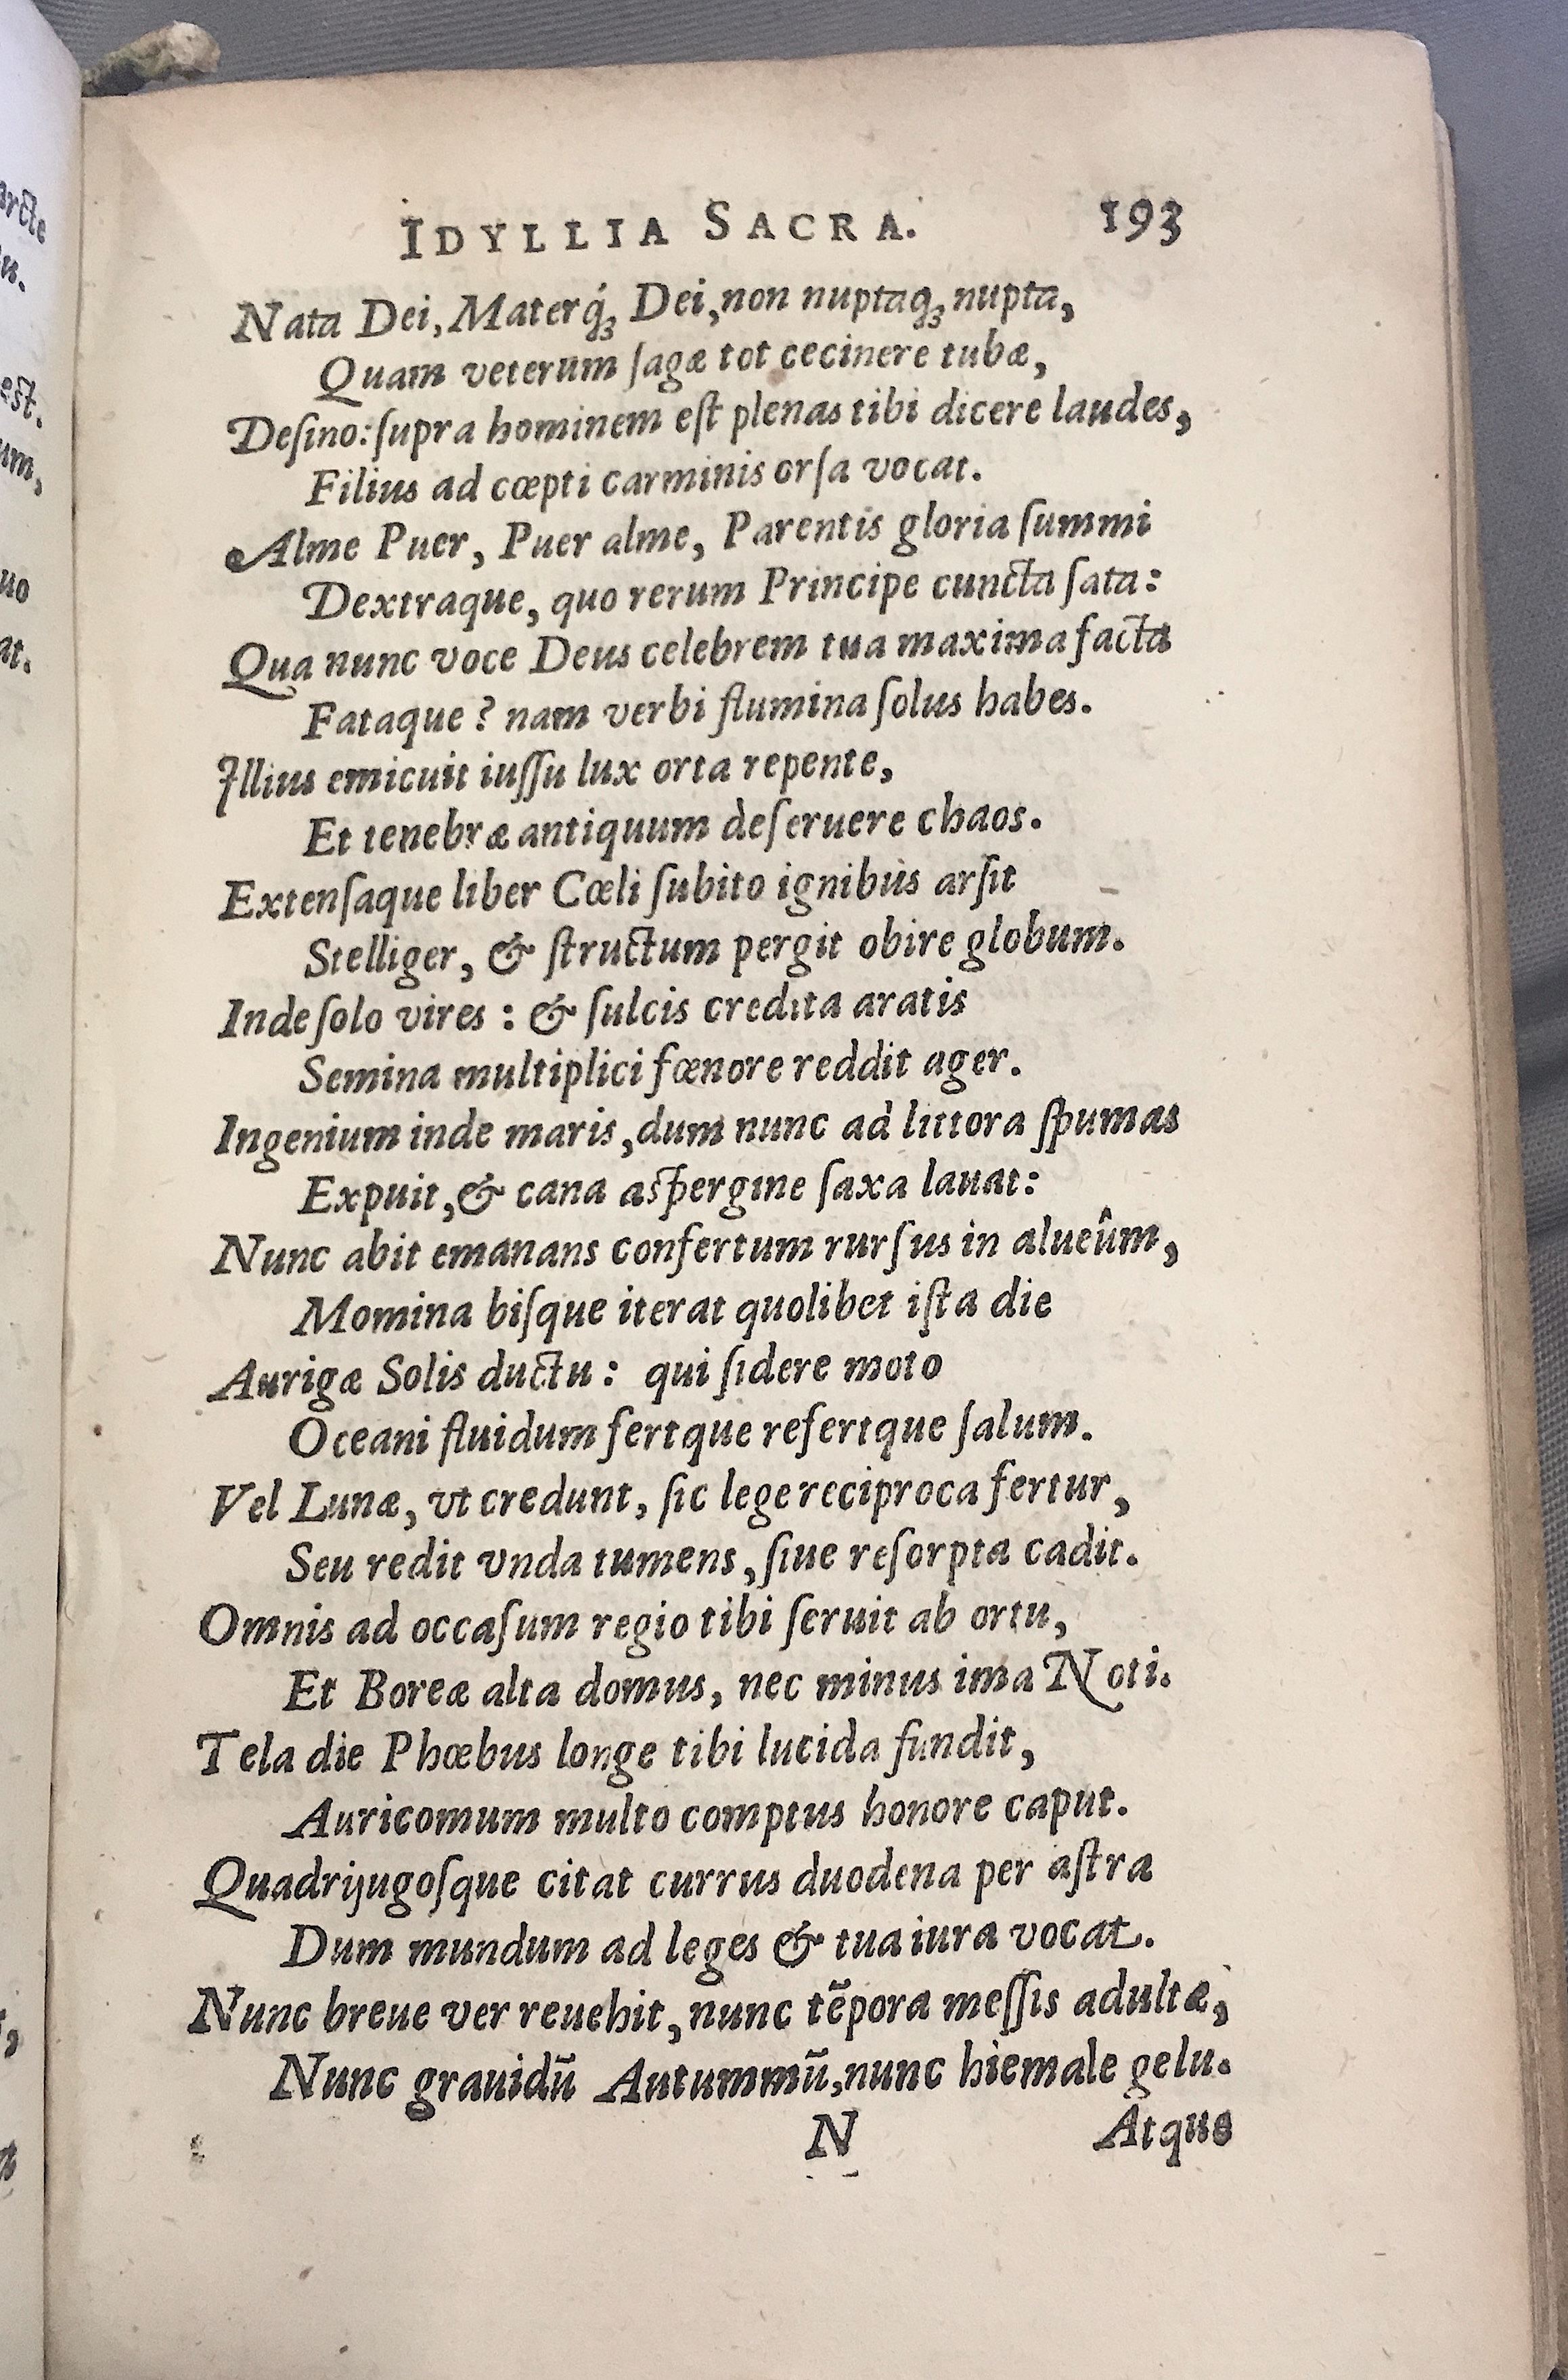 IDYLLIA SACRA. 193
Nata Dei, Materq́ꝫ Dei, non nuptaqꝫ nupta,
Quam veterum ſagæ tot cecinere tubæ,
Deſino: ſupra hominem eſt plenas tibi dicere laudes,
Filius ad cœpti carminis orſa vocat.
Alme Puer, Puer alme, Parentis gloria ſummi
Dextraque, quo rerum Principe cuncta ſata:
Qua nunc voce Deus celebrem tua maxima facta
Fataque? nam verbi flumina ſolus habes.
Illius emicuit iuſſu lux orta repente,
Et tenebræ antiquum deſeruere chaos.
Extenſaque liber Cœli ſubito ignibus arſit
Stelliger, & ſtructum pergit obire globum.
Inde ſolo vires: & ſulcis credita aratis
Semina multiplici fœnore reddit ager.
Ingenium inde maris, dum nunc ad littora ſpumas
Expuit, & cana aſpergine ſaxa lauat:
Nunc abit emanans confertum rurſus in alueûm,
Momina biſque iterat quolibet iſta die
Aurigæ Solis ductu: qui ſidere moto
Oceani fluidum fertque refertque ſalum.
Vel Lunæ, vt credunt, ſic lege reciproca fertur,
Seu redit vnda tumens, ſiue reſorpta cadit.
Omnis ad occaſum regio tibi ſeruit ab ortu,
Et Boreæ alta domus, nec minus ima Noti.
Tela die Phœbus longe tibi lucida fundit,
Auricomum multo comptus honore caput.
Quadrijugoſque citat currus duodena per aſtra
Dum mundum ad leges & tua iura vocat.
Nunc breue ver reuehit, nunc tẽpora meſſis adultæ,
Nunc grauidũ Autummũ, nunc hiemale gelu.
N Atque